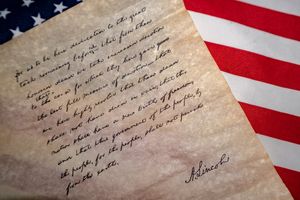 for us to be here dedicated to the great
task remaining before us that from these
honored dead we take increased devotion
to that cause for which they here gave
the last full measure of devotion that
we here highly resolve that these dead
shall not have died in vain; that this
nation shall have a new birth of freedom;
and that this government of the people, by
the people, for the people, shall not perish
from the earth.
A. Lincoln